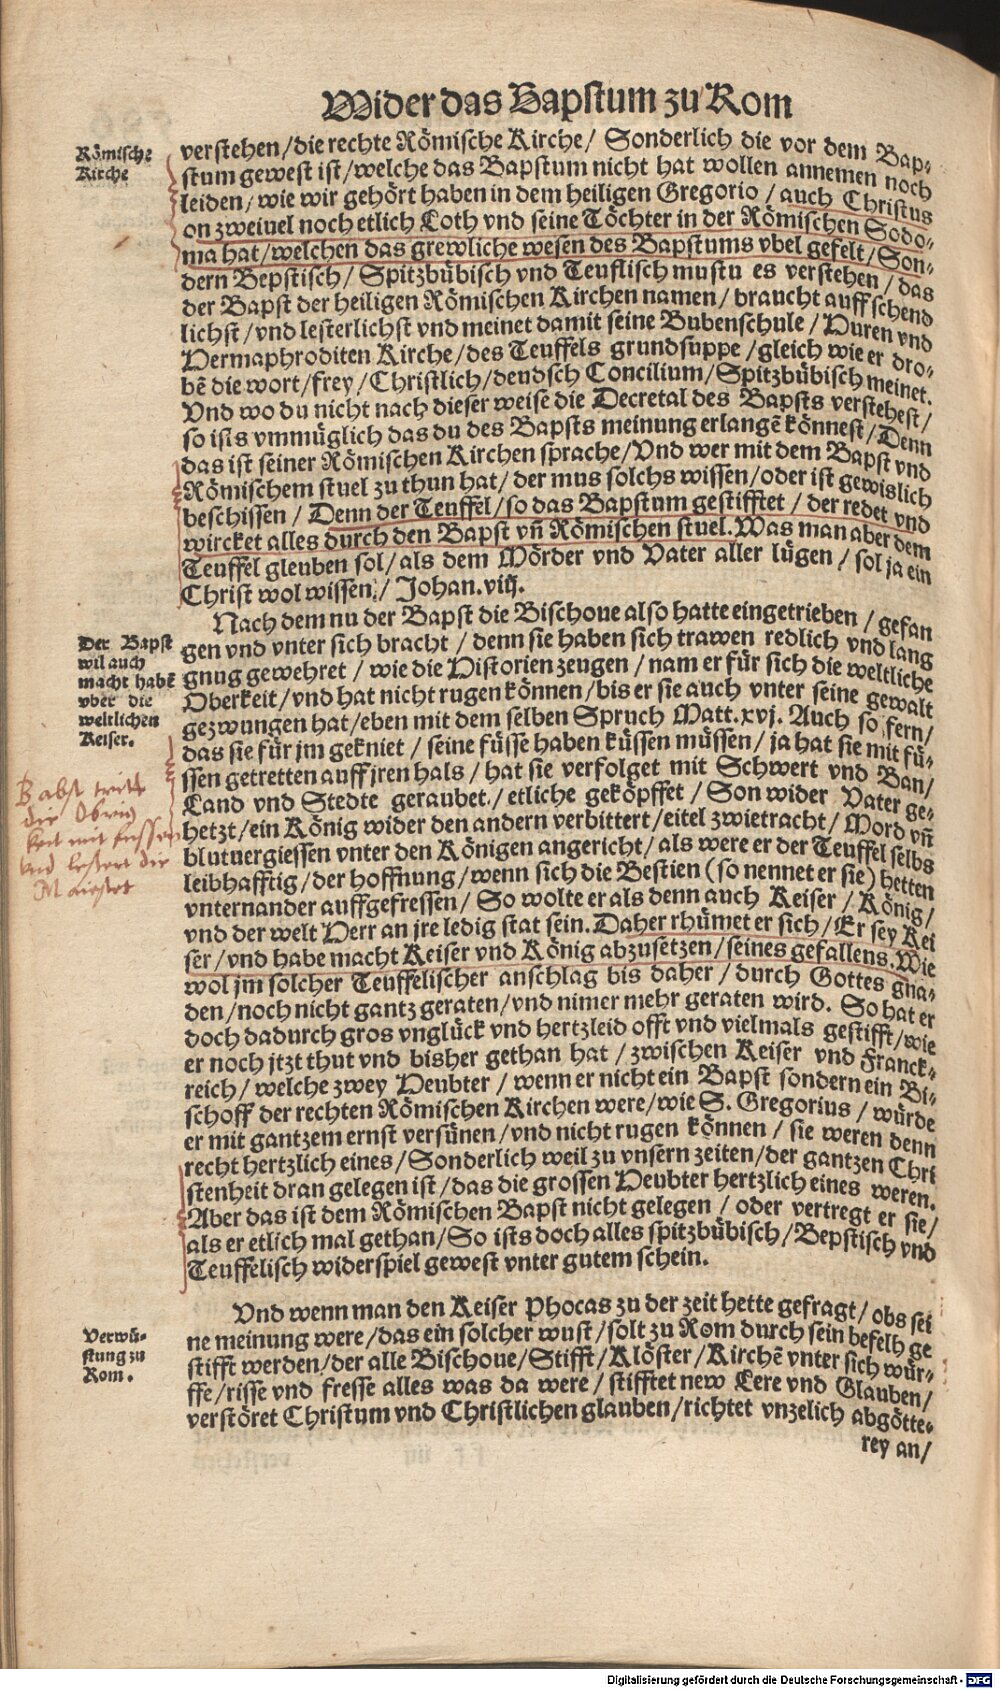 Wider das Bapstum zu Rom
Römische
Kirche
verstehen/die rechte Römische Kirche/ Sonderlich die vor dem Bap⸗
stum gewest ist/welche das Bapstum nicht hat wollen annemen noch
leiden/wie wir gehört haben in dem heiligen Gregorio/auch Christus
on zweiuel noch etlich Loth vnd seine Töchter in der Römischen Sodo⸗
ma hat/welchen das grewliche wesen des Bapstums vbel gefelt/Son⸗
dern Bepstisch/ Spitzbübisch vnd Teuflisch mustu es verstehen/das
der Bapst der heiligen Römischen Kirchen namen/braucht auff schend
lichst/vnd lesterlichst vnd meinet damit seine Bubenschule/Huren vnd
Hermaphroditen Kirche/des Teuffels grundsuppe/gleich wie er dro⸗
bẽ die wort/frey/Christlich/deudsch Concilium/Spitzbübisch meinet.
Vnd wo du nicht nach dieser weise die Decretal des Bapsts verstehest/
so ists vmmüglich das du des Bapsts meinung erlangẽ könnest/Denn
das ist seiner Römischen Kirchen sprache/Vnd wer mit dem Bapst vnd
Römischem stuel zu thun hat/der mus solchs wissen/oder ist gewislich
beschissen/ Denn der Teuffel/so das Bapstum gestifftet/der redet vnd
wircket alles durch den Bapst vñ Römischen stuel. Was man aber dem
Teuffel gleuben sol/als dem Mörder vnd Vater aller lügen/sol ja ein
Christ wol wissen/ Johan.viij.
Der Bapst
wil auch
macht habẽ
vber die
weltlichen
Keiser.
Nach dem nu der Bapst die Bischoue also hatte eingetrieben/gefan
gen vnd vnter sich bracht/denn sie haben sich trawen redlich vnd lang
gnug gewehret/wie die Historien zeugen/nam er für sich die weltliche
Oberkeit/vnd hat nicht rugen können/bis er sie auch vnter seine gewalt
gezwungen hat/eben mit dem selben Spruch Matt.xvj. Auch so fern/
das sie für jm gekniet/seine füsse haben küssen müssen/ja hat sie mit fü⸗
ssen getretten auff jren hals/hat sie verfolget mit Schwert vnd Ban/
Land vnd Stedte geraubet/etliche geköpffet/Son wider Vater ge⸗
hetzt/ein König wider den andern verbittert/eitel zwietracht/Mord vñ
blutuergiessen vnter den Königen angericht/als were er der Teuffel selbs
leibhafftig/der hoffnung/wenn sich die Bestien (so nennet er sie) hetten
vnternander auffgefressen/So wolte er als denn auch Keiser/König/
vnd der welt Herr an jre ledig stat sein. Daher rhümet er sich/Er sey Kei
ser/vnd habe macht Keiser vnd König abzusetzen/seines gefallens. Wie
wol jm solcher Teuffelischer anschlag bis daher/durch Gottes gna⸗
den/noch nicht gantz geraten/vnd nimer mehr geraten wird. So hat er
doch dadurch gros vnglück vnd hertzleid offt vnd vielmals gestifft/wie
er noch jtzt thut vnd bisher gethan hat/zwischen Keiser vnd Franck⸗
reich/welche zwey Heubter/wenn er nicht ein Bapst sondern ein Bi⸗
schoff der rechten Römischen Kirchen were/wie S. Gregorius/würde
er mit gantzem ernst versünen/vnd nicht rugen können/sie weren denn
recht hertzlich eines/Sonderlich weil zu vnsern zeiten/der gantzen Chri
stenheit dran gelegen ist/das die grossen Heubter hertzlich eines weren.
Aber das ist dem Römischen Bapst nicht gelegen/oder vertregt er sie/
als er etlich mal gethan/So ists doch alles spitzbübisch/Bepstisch vnd
Teuffelisch widerspiel gewest vnter gutem schein.
Babst tritt
die Obrig
keit mit fussen
vnd lestert die
Maiestet
Verwü⸗
stung zu
Rom.
Vnd wenn man den Keiser Phocas zu der zeit hette gefragt/obs sei
ne meinung were/das ein solcher wust/solt zu Rom durch sein befelh ge
stifft werden/der alle Bischoue/Stifft/Klöster/Kirchẽ vnter sich wür⸗
ffe/risse vnd fresse alles was da were/stifftet new Lere vnd Glauben/
verstöret Christum vnd Christlichen glauben/richtet vnzelich abgötte⸗
rey an/
Digitalisierung gefördert durch die Deutsche Forschungsgemeinschaft - DFG